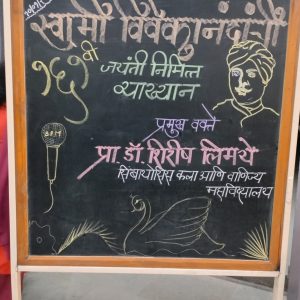 स्वामी विवेकानंदांची
१६१ वी
जयंती निमित्त
व्याख्यान
प्रमुख वक्ते
प्रा डॉ. शिरीष लिमये
सिंबायोसिस कला आणि वाणिज्य
महाविद्यालय